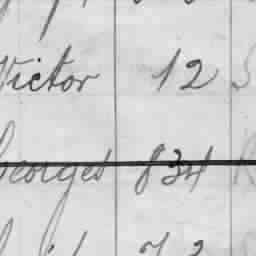 Victor 12
Georges 834